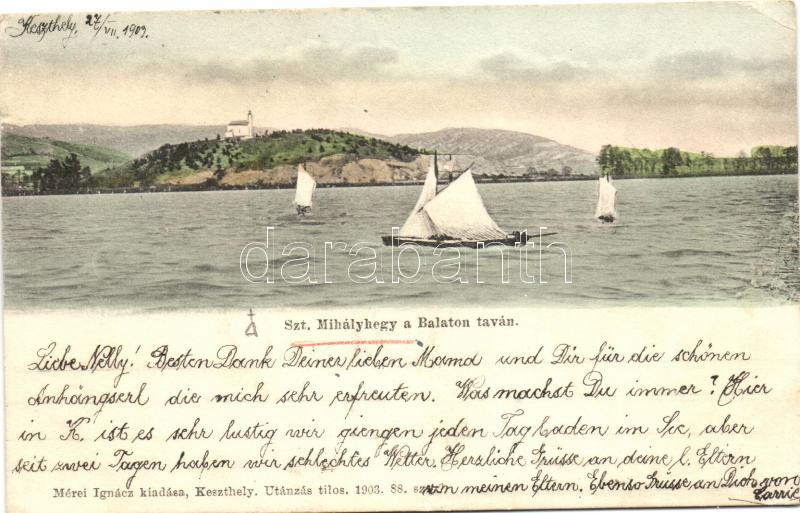 Keszthely, 27/VII. 1909.
darabanth
Szt. Mihályhegy a Balaton taván.
Liebe Nelly! Besten Dank Deiner lieben Mama und Dir für die schönen
Anhängserl die mich sehr erfreuten. Was machst Du immer? Hier
in K. ist es sehr lustig wir giengen jeden Tag baden im See, aber
seit zwei Tagen haben wir schlechtes Wetter. Herzliche Grüsse an deine l. Eltern
Mérei Ignácz kiadása, Keszthely. Utánzás tilos. 1903. 88. von meinen Eltern. Ebenso Grüsse an Dich von
Carrie